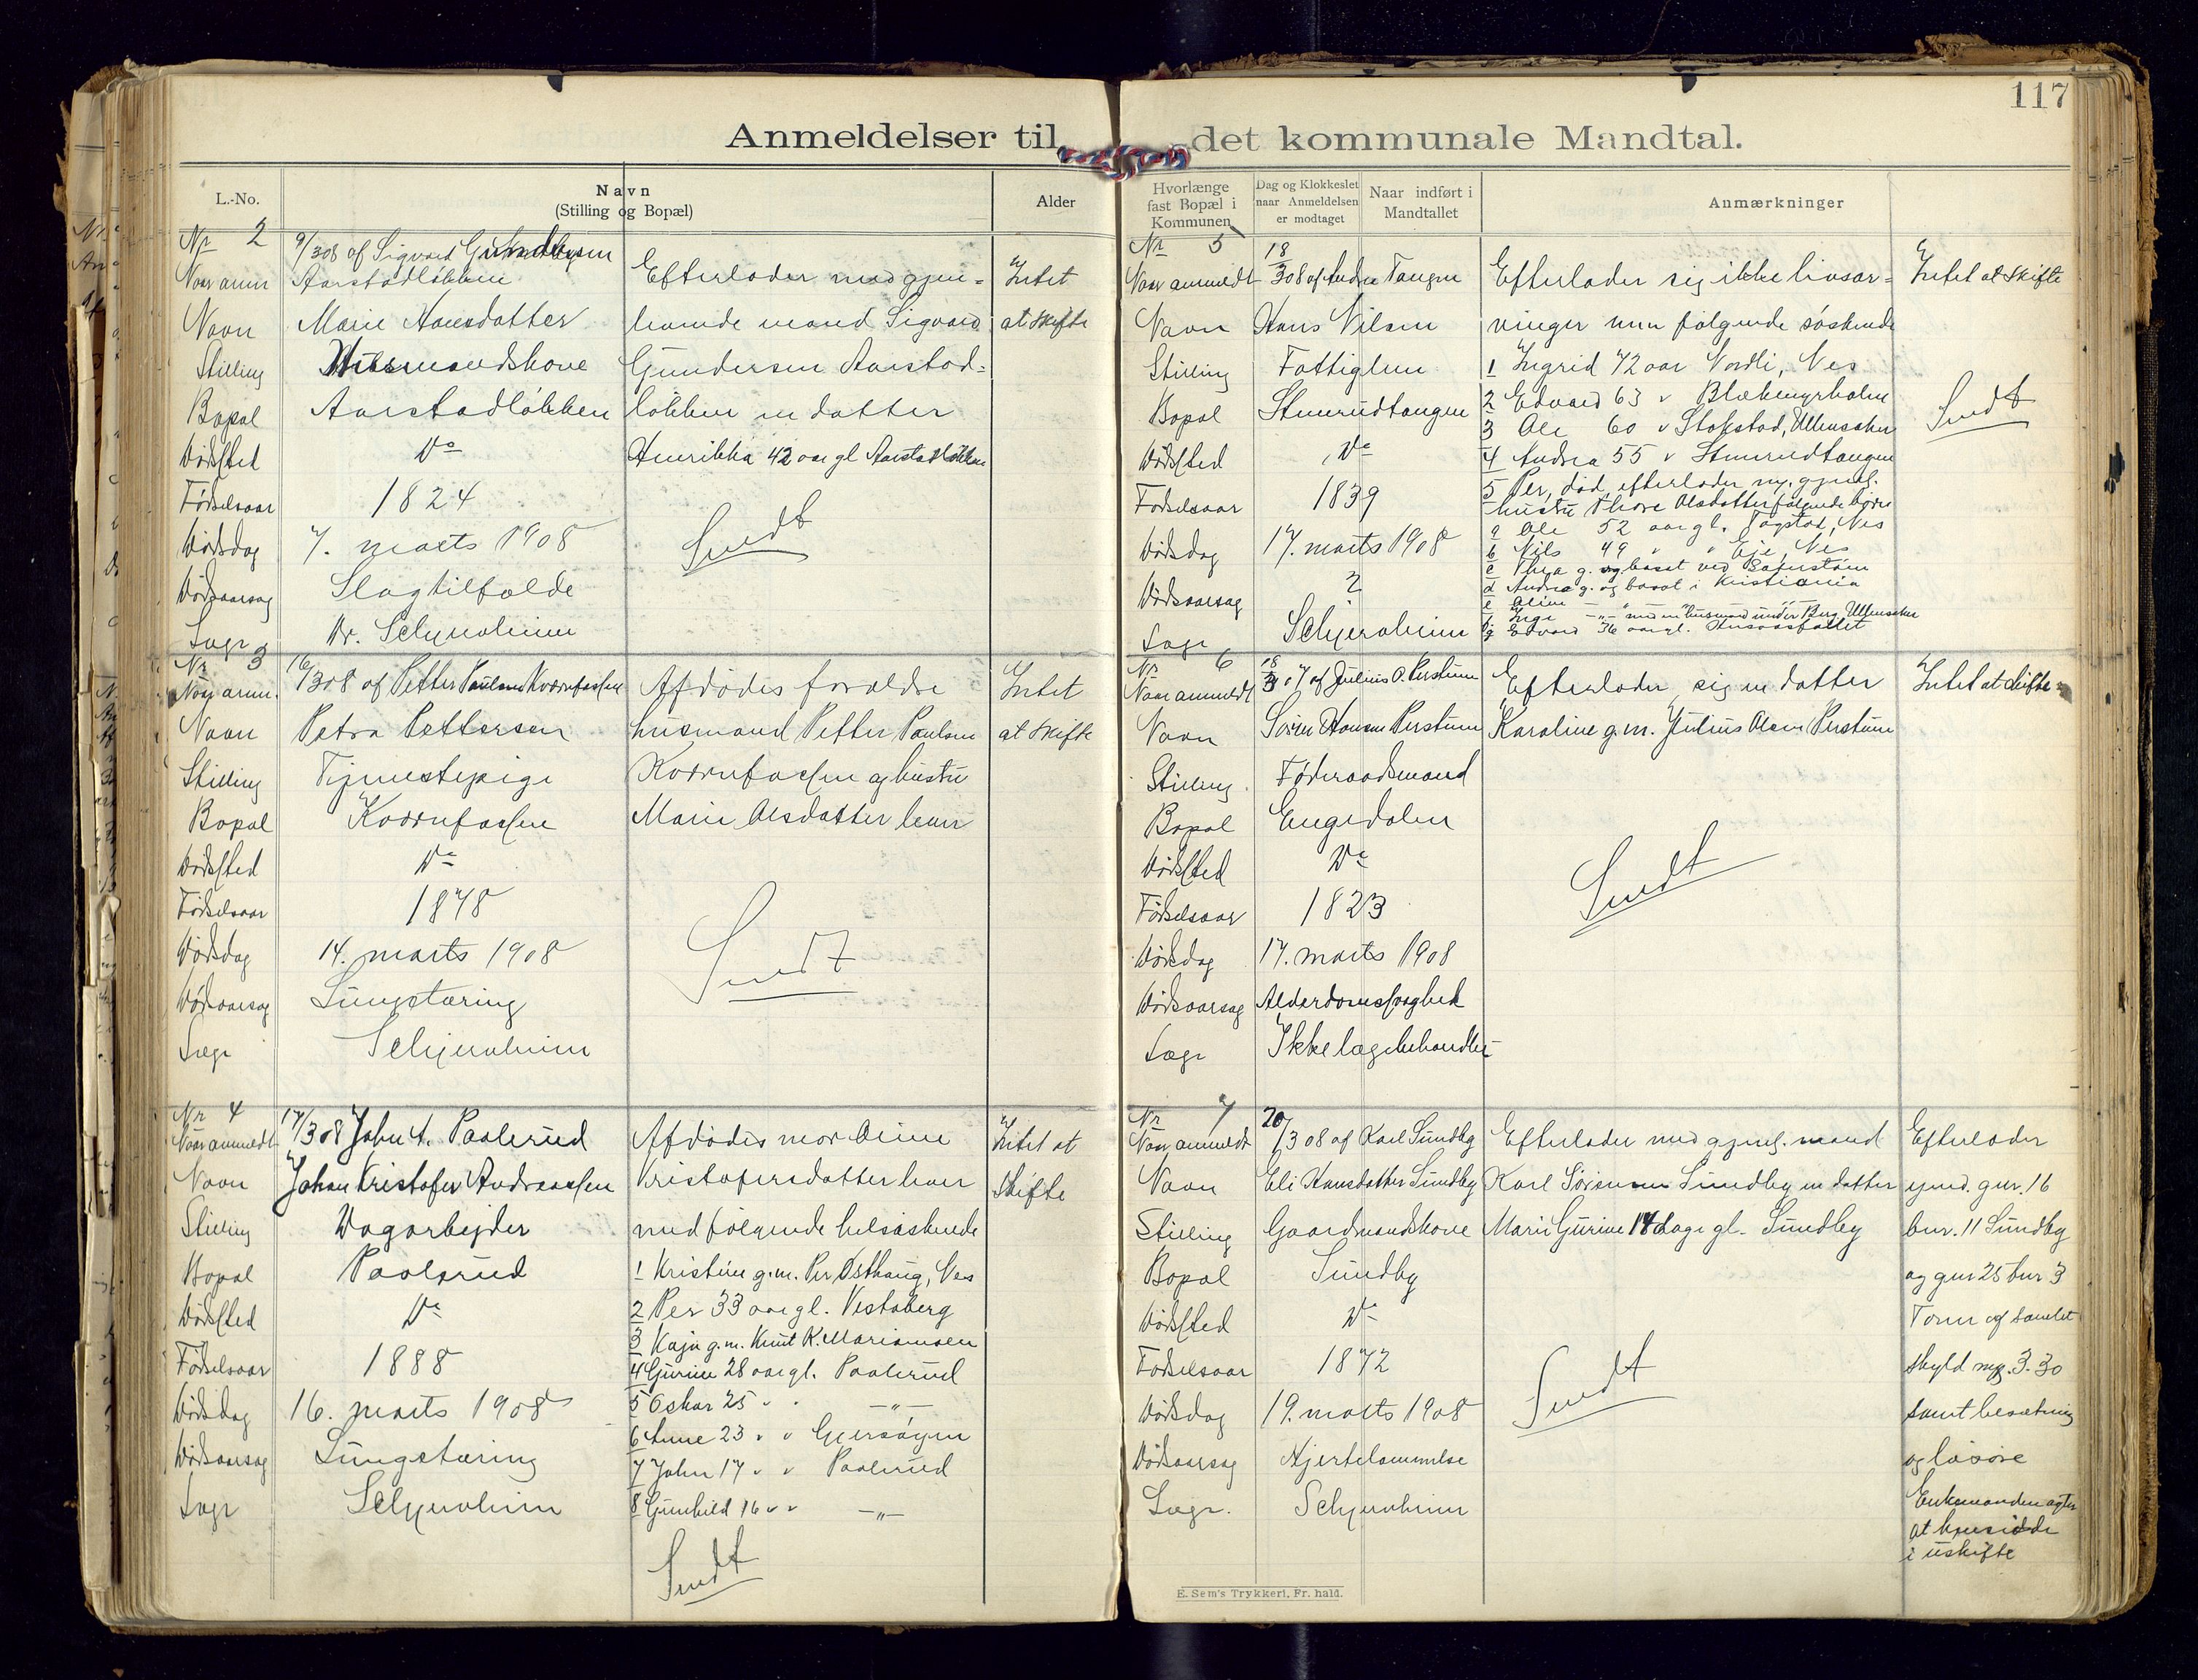 117
Anmeldelser til det kommunale Mandtal.
L.-No.
Navn
(Stilling og Bopæl)
Alder
Hvorlænge
fast Bopæl i
Kommunen
Dag og Klokkeslet
naar Anmeldelsen
er modtaget
Naar indført i
Mandtallet
Anmærkninger
Nr 2
Naar anm 9/3 08 af Sigvard Gundersen
Aarstadløkken
Navn Marie Hansdatter
Stilling Husmandskone
Bopæl Aarstadløkken
Dødsted Do
Fødselsaar 1824
Dødsdag 7. marts 1908
Dødsaarsag Slagtilfælde
Læge Dr. Schjenvheim
Efterlader med gjen-
levende mand Sigvard
Gundersen Aarstad-
løkken en datter
Henrikka 42 aar gl Aarstadløkken
Sendt
Intet
at skifte
Nr 3
Naar anm. 16/3 08 af Petter Paulsen Kværnfossen
Navn Petra Pettersen
Stilling Tjenestepige
Bopæl Kværnfossen
Dødsted Do
Fødselsaar 1878
Dødsdag 14. marts 1908
Dødsaarsag Lungetæring
Læge Schjenvheim
Afdødes forældre
husmand Petter Paulsen
Kværnfossen og hustru
Marie Olsdatter lever
Sendt
Intet
at skifte
Nr 4
Naar anmeldt 17/3 08 John A. Paalsrud
Navn Johan Kristofer Andreassen
Stilling Dagarbejder
Bopæl Paalsrud
Dødsted Do
Fødselsaar 1888
Dødsdag 16. marts 1908
Dødsaarsag Lungetæring
Læge Schjenvheim
Afdødes mor Oline
Kristofersdatter lever
med følgende helsøskende
1 Kristine g.m. Per Østhaug, Nes
2 Per 33 aar gl. Vestaberg
3 Kaja g.m. Knut K. Mariamoen
4 Gurine 28 aar gl. Paalsrud
5 Oskar 25 " " — " —
6 Anne 23 " " Gjersøyen
7 John 17 " " Paalsrud
8 Gunhild 16 " " — " —
Sendt
Intet at
skifte
Nr 5
Naar anmeldt 18/3 08 af Andrea Tangen
Navn Hans Nilsen
Stilling Fattiglem
Bopæl Stenrudtangen
Dødsted Do
Fødselsaar 1839
Dødsdag 17. marts 1908
Dødsaarsag ?
Læge Schjenvheim
Efterlader sig ikke livsar-
vinger men følgende søskende
1 Ingrid 72 aar Nordli, Nes
2 Edvard 63 " Blækmyrholm
3 Ole 60 " Stokstad, Ullensaker
4 Andrea 55 " Stenrudtangen
5 Per, død, efterlader m. gjenl.
hustru Thore Olsdatter følgende børn
a Ole 52 aar gl. Fogstad, Nes
b Nils 49 " " Eje, Nes
c Thea g. og bosat ved
d Andrea g. og bosat i Kristiania
e Oline — " —
f Inge — " — med en husmand under Berg, Ullensaker
g Edvard 36 aar gl.
Intet at skifte
Sendt
Nr 6
Naar anmeldt 18/3 07 af Julius O. Perstuen
Navn Søren Hansen Perstuen
Stilling Føderaadsmand
Bopæl Engedalen
Dødsted Do
Fødselsaar 1823
Dødsdag 17. marts 1908
Dødsaarsag Alderdomssvaghed
Læge Ikke lægebehandlet
Efterlader sig en datter
Karoline g.m. Julius Olsen Perstuen
Sendt
Intet at skifte
Nr 7
Naar anmeldt 20/3 08 af Karl Sundby
Navn Eli Hansdatter Sundby
Stilling Gaardmandskone
Bopæl Sundby
Dødsted Do
Fødselsaar 1872
Dødsdag 19. marts 1908
Dødsaarsag Hjertelammelse
Læge. Schjenvheim
Efterlader med gjenl. mand
Karl Sørensen Sundby en datter
Marie Gurine 14 dage gl. Sundby
Sendt
Efterlader
ejend. gnr. 16
bnr. 11 Sundby
og gnr 25 bnr 3
Toren af samlet
skyld mrk. 3.30
samt besætning
og løsøre
Enkemanden agter
at hensidde
i uskifte
E. Sem's Trykkeri, Fr.hald.